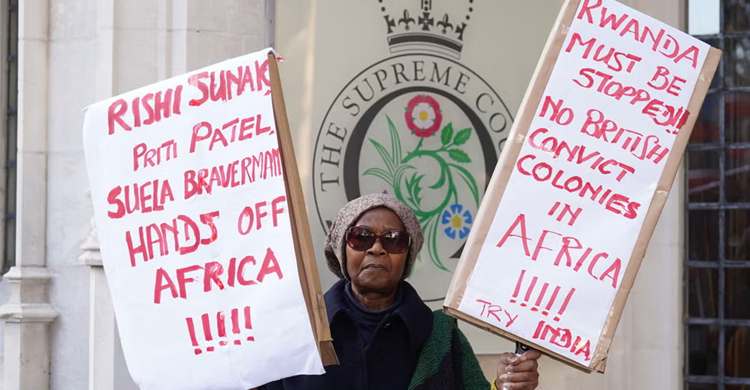 RISHI SUNAK
PRITI PATEL,
SUELA BRAVERMAN
HANDS OFF
AFRICA
!!!!!
THE SUPREME COU
RWANDA
MUST BE
STOPPED!!
NO BRITISH
CONVICT
COLONIES
IN
AFRICA
!!!!!
TRY INDIA